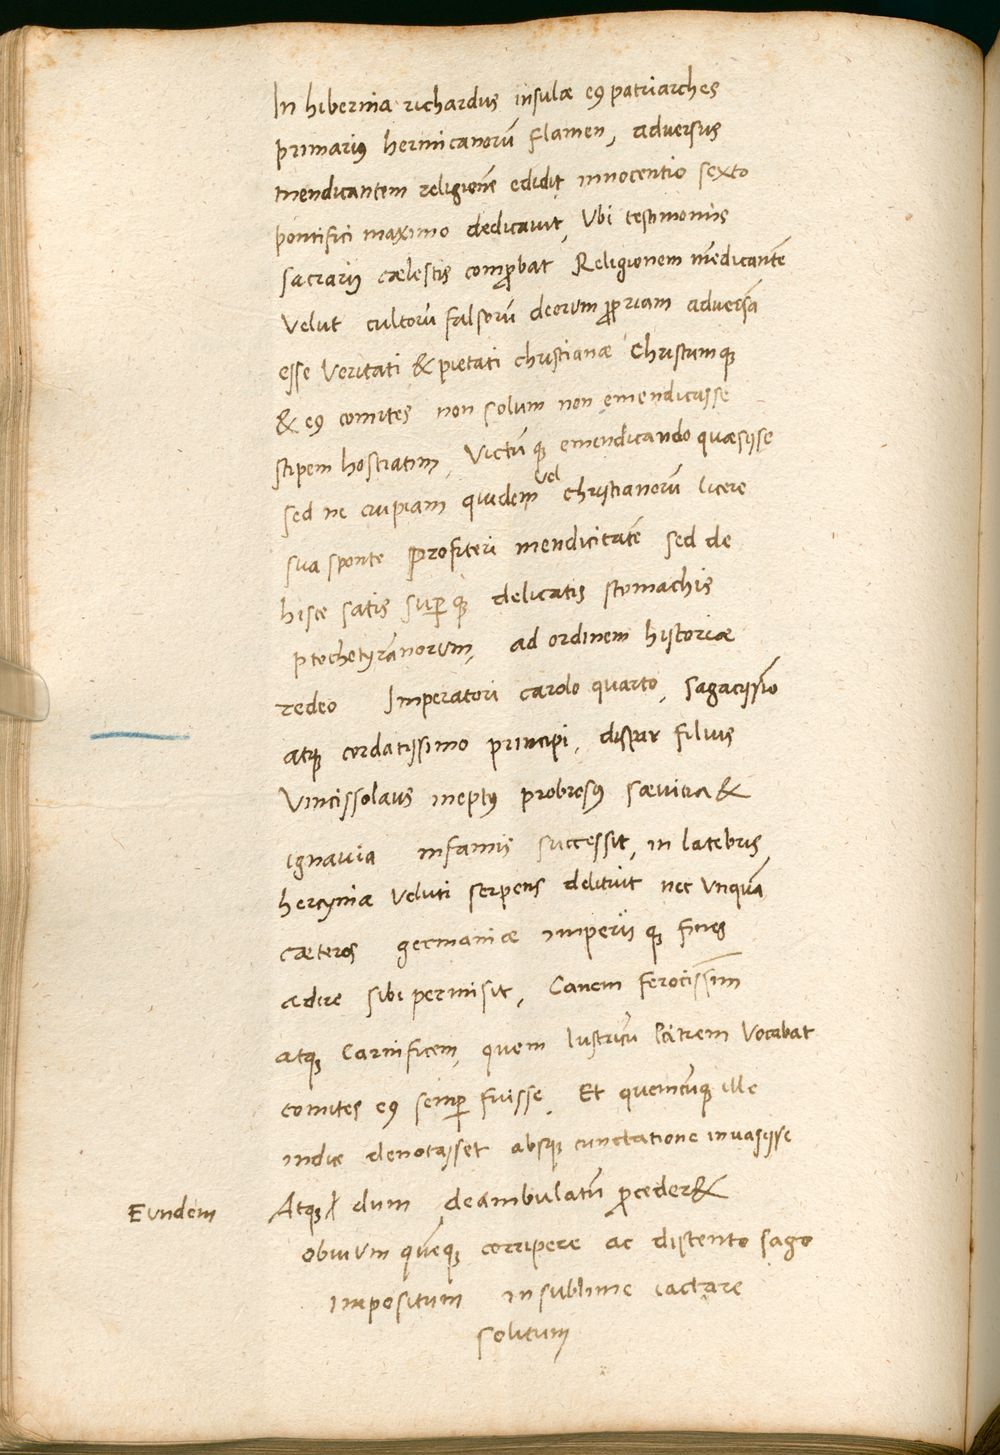 In hibernia richardus insulæ eꝰ patriarches
primariꝰ hermicanorū flamen, adversus
mendicantem religionē edidit innocentio sexto
pontifici maximo dedicavit, Vbi testimoniis
sacrarii cælestis comꝓbat Religionem mēdicantē
Velut cultorū falsorū deorum ꝓpriam adversā
esse Veritati & pietati christianæ Christumqꝫ
& eꝰ comites non solum non emendicasse
stipem hostiatim, Victū qꝫ emendicando quæsisse
sed ne cuipiam quidem vel christianorū licere
sua sponte profiteri mendicitatē sed de
hisce satis suꝑ qꝫ delicatis stomachis
ptochotyrānorum, ad ordinem historiæ
redeo Imperatori carolo quarto, sagacissīo
atqꝫ cordatissimo principi, dispar filius
Vincissolaus ineptꝰ probrosꝰ sævicia &
ignavia infamis successit, in latebris
hercyniæ Veluti serpens delituit nec Vnquā
cæteros germaniæ imperii qꝫ fines
adire sibi permisit, Canem ferocissīm
atqꝫ Carnificem, quem lustricū patrem Vocabat
comites eꝰ semꝑ fuisse. Et quemcūqꝫ ille
indie denotasset absqꝫ cunctatione invasisse
Eundem Atqꝫ dum deambulatū ꝓceder&
obvium quēqꝫ corripere ac distento sago
impositum in sublime iactare
solitum